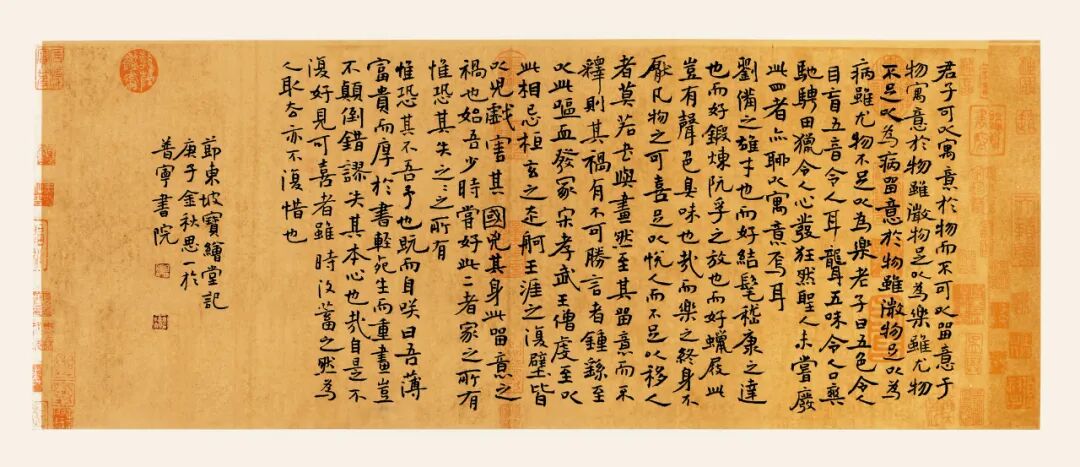 君子可以寓意於物而不可以留意于
物寓意於物雖微物足以為樂雖尤物
不足以為病留意於物雖微物足以為
病雖尤物不足以為樂老子曰五色令人
目盲五音令人耳聾五味令人口爽
馳騁田獵令人心發狂然聖人未嘗廢
此四者亦聊以寓意焉耳
劉備之雄才也而好結髦嵇康之達
也而好鍛煉阮孚之放也而好蠟屐此
豈有聲色臭味也哉而樂之終身不
厭凡物之可喜足以悅人而不足以移人
者莫若書與畫然至其留意而不
釋則其禍有不可勝言者鍾繇至
以此嘔血發冢宋孝武王僧虔至以
此相忌桓玄之走舸王涯之復壁皆
以兒戲害其國兇其身此留意之
禍也始吾少時嘗好此二者家之所有
惟恐其失之之所有
惟恐其不吾予也既而自咲曰吾薄
富貴而厚於書輕死生而重畫豈
不顛倒錯謬失其本心也哉自是不
復好見可喜者雖時復蓄之然為
人取去亦不復惜也
節東坡寶繪堂記
庚子金秋思一於
普寧書院